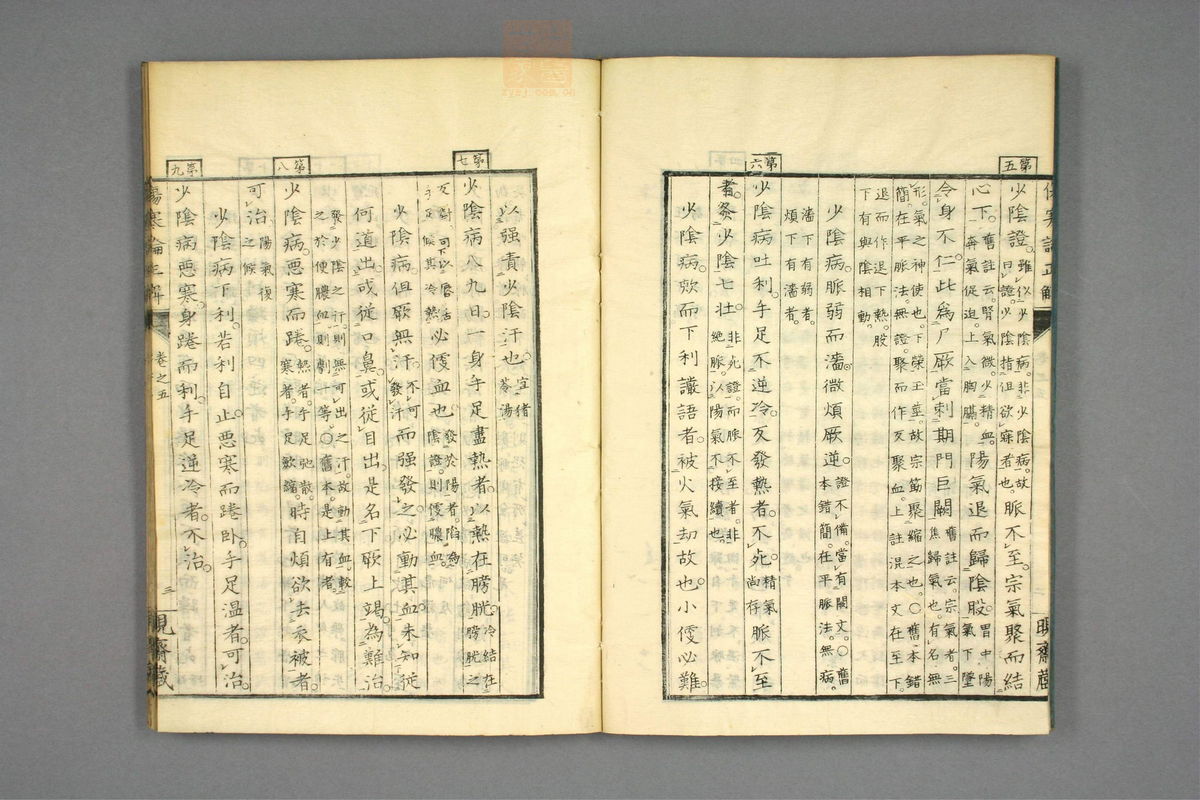 第五
少陰證。雖似少陰病。非少陰病。故曰證。少陰指但欲寐者也。脈不至。宗氣聚而結
心下。舊註云。腎氣微。少精血。奔氣促迫。上入胸膈。陽氣退而歸陰股。胃中陽氣下墜
令身不仁。此爲尸厥。當刺期門巨闕。舊註云。宗氣者。三焦歸氣也。有名無
形。氣之神使也。下榮玉莖。故宗筋聚縮之也。〇舊本錯
簡。在平脈法。無證。聚而作反聚。血上註混本文在至下。
退而作退下。熱。股
下有與陰相動。
少陰病。脈弱而濇。微煩厥逆。證不備。當有闕文。〇舊本錯簡。在平脈法。無病。
濇下有弱者。
煩下有濇者。
第六
少陰病吐利。手足不逆冷。反發熱者。不死。精氣尚存脈不至
者。灸少陰七壯。非死證。而脈不至者。非絶脈。以陽氣不接續也。
少陰病。欬而下利讝語者。被火氣劫故也。小便必難。
以强責少陰汗也。宜猪苓湯
第七
少陰病八九日。一身手足盡熱者。以熱在膀胱。冷結在膀胱之
反對。可下以唇舌
候其冷熱必便血也。發於陽者。陷爲陰證。則便膿血。
少陰病。但厥無汗。不可發汗而强發之。必動其血。未知從
何道出。或從口鼻。或從目出。是名下厥上竭。爲難治。
發少陰之汗。則無可出之汗。故動其血。較
之於便膿血。則劇十等。〇舊本。是上有者。
第八
少陰病。惡寒而踡。熱者。手足弛散。寒者。手足歛縮。時自煩。欲去衣被者。
可治。陽氣復之候
少陰病下利。若利自止。惡寒而踡卧。手足温者。可治。
第九
少陰病惡寒。身踡而利。手足逆冷者。不治。
卷之五
三